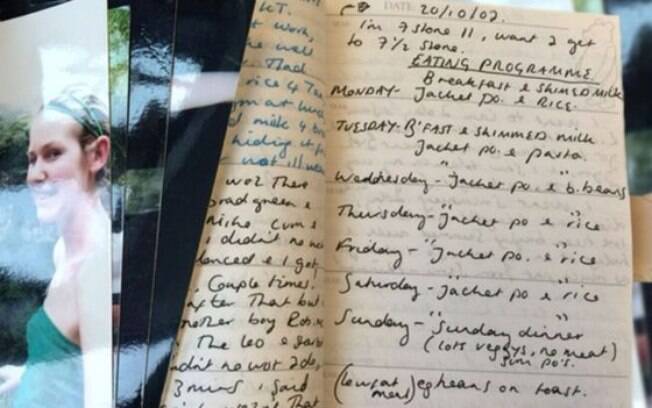 KT.
t work,
he well
Thad
rice 4 Te
m at lunc
d milk 4 t
hiding it f
not ill
woz There
brad green &
cum &
i didn't no
lanced & I got
Couple times.
after That but
nother boy Rob
The leo & gar
didn't no wot 2 do,
3 mins, i said
That
DATE
20/10/02.
I'm 7 stone 11, want 2 get
to 7 1/2 stone.
EATING PROGRAMME
Breakfast & SKIMED MILK
MONDAY- Jacket po. & RICE.
TUESDAY- B'FAST & SKIMMED MILK
Jacket po. & pasta.
Wednesday - " Jacket po. & " b. beans
Thursday - " Jacket po & " rice
Friday - " Jacket po. & " rice
Saturday - " Jacket po & " rice
Sunday - " Sunday dinner "
(lots veggys, no meat)
po's.
(lowfat meal) eg beans on toast.